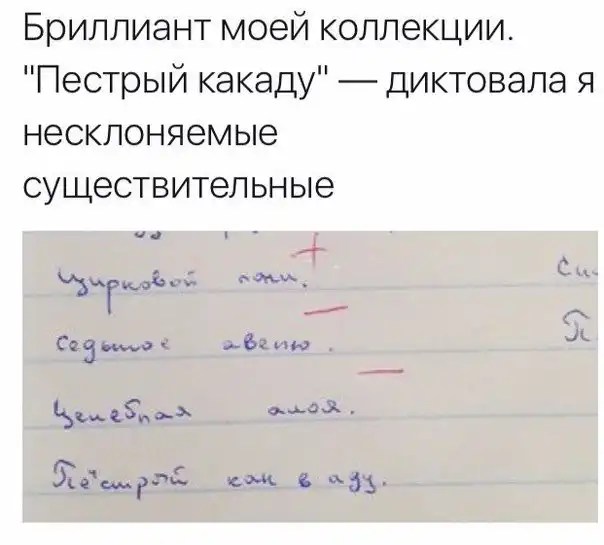 Бриллиант моей коллекции.
"Пестрый какаду" — диктовала я
несклоняемые
существительные
Цирковой пони.
Седьмое авеню.
Целебная алоя.
Пёстрый как в аду.